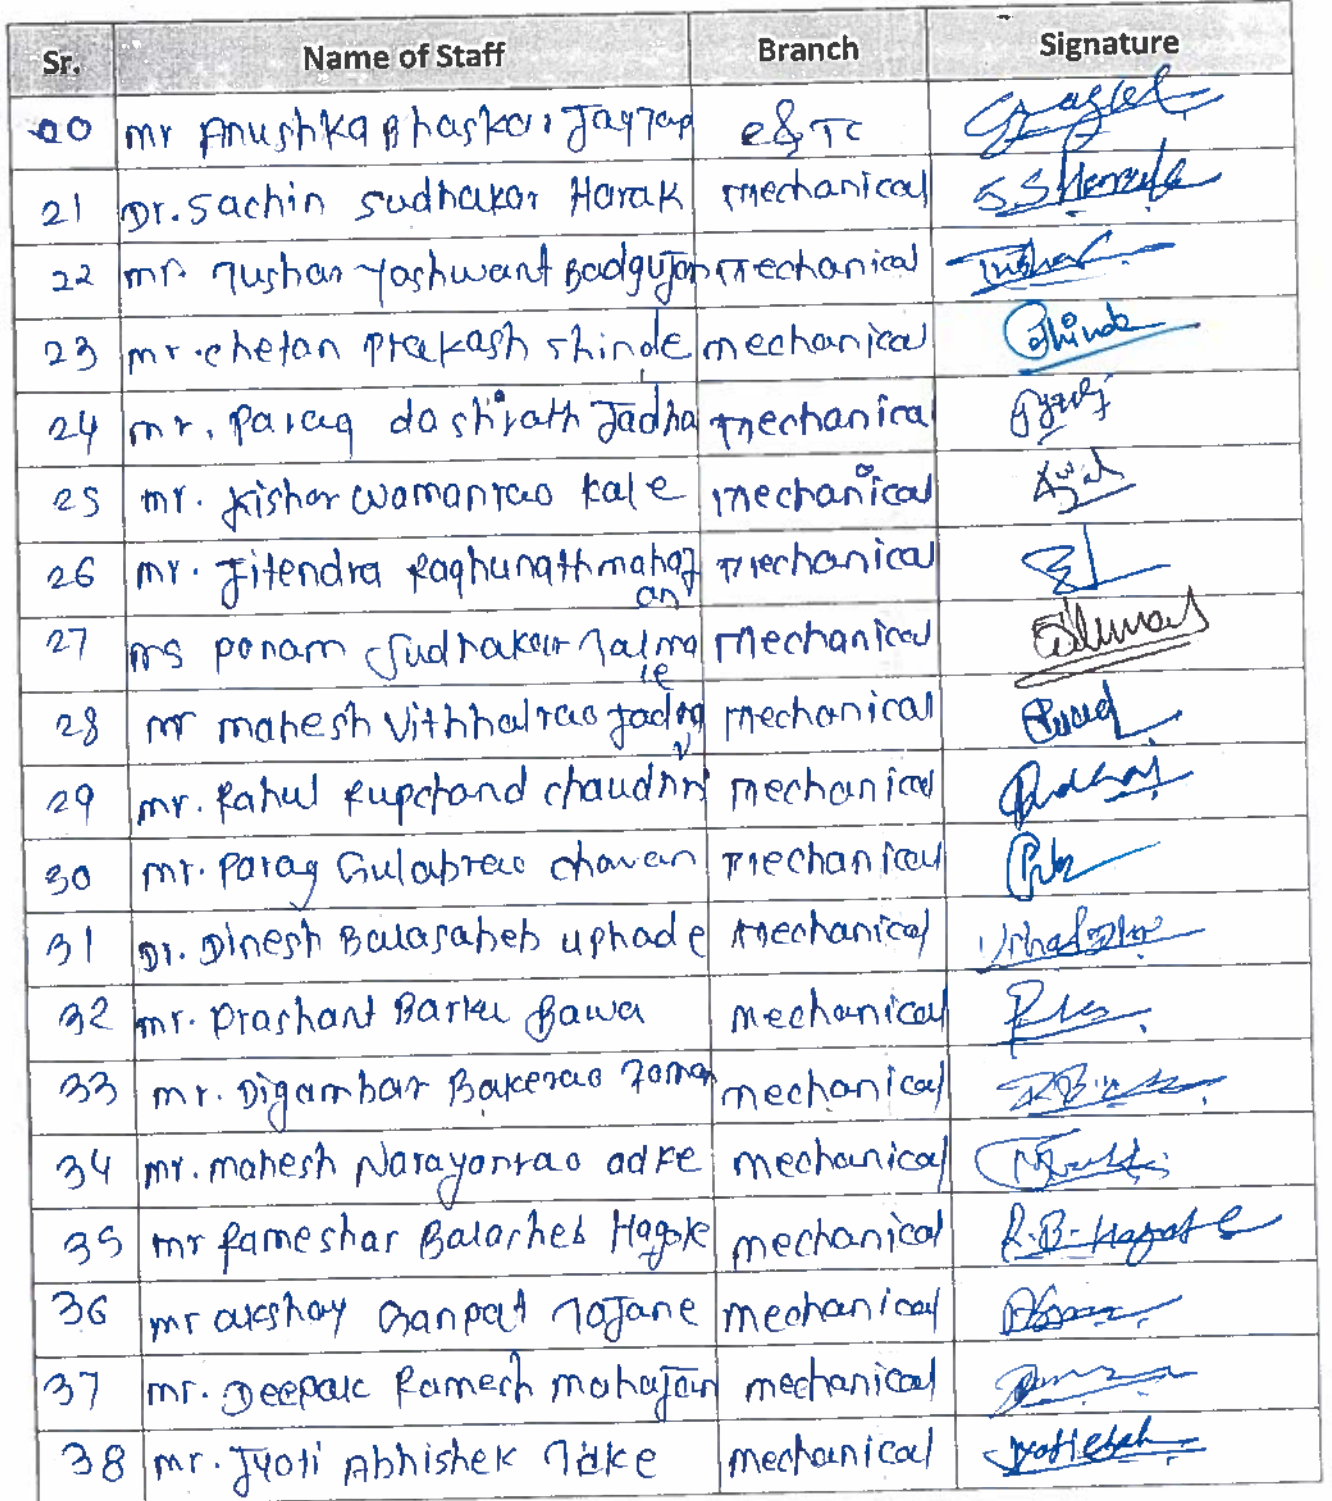 Sr. Name of Staff Branch Signature
20 mr Anushka Bhaskar Jagtap e&Tc
21 Dr. Sachin Sudhakar Harak mechanical S.S Harak
22 mr. Tushar Yashwant Badgujar mechanical Tushar
23 mr. chetan prakash shinde mechanical Shinde
24 mr. Parag dashrath Jadha mechanical
25 mr. kishor wamanrao kale mechanical
26 mr. Jitendra Raghunath mahaj mechanical
an
27 ms ponam Sudhakar Talma mechanical
le
28 mr mahesh Vithhalrao Jadha mechanical
v
29 mr. Rahul Rupchand chaudhri mechanical
30 mr. Parag Gulabrao chavan mechanical
31 Dr. Dinesh Balasaheb uphade mechanical
32 mr. Prashant Barku Bawa mechanical
33 mr. Digambar Bakerao mechanical
34 mr. mahesh Narayanrao adke mechanical
35 mr Rameshar Balasheb Hagote mechanical R.B. Hagote
36 mr akshay Ganpat Tajane mechanical
37 mr. Deepak Ramesh mahajan mechanical
38 mr. Jyoti Abhishek Tidke mechanical